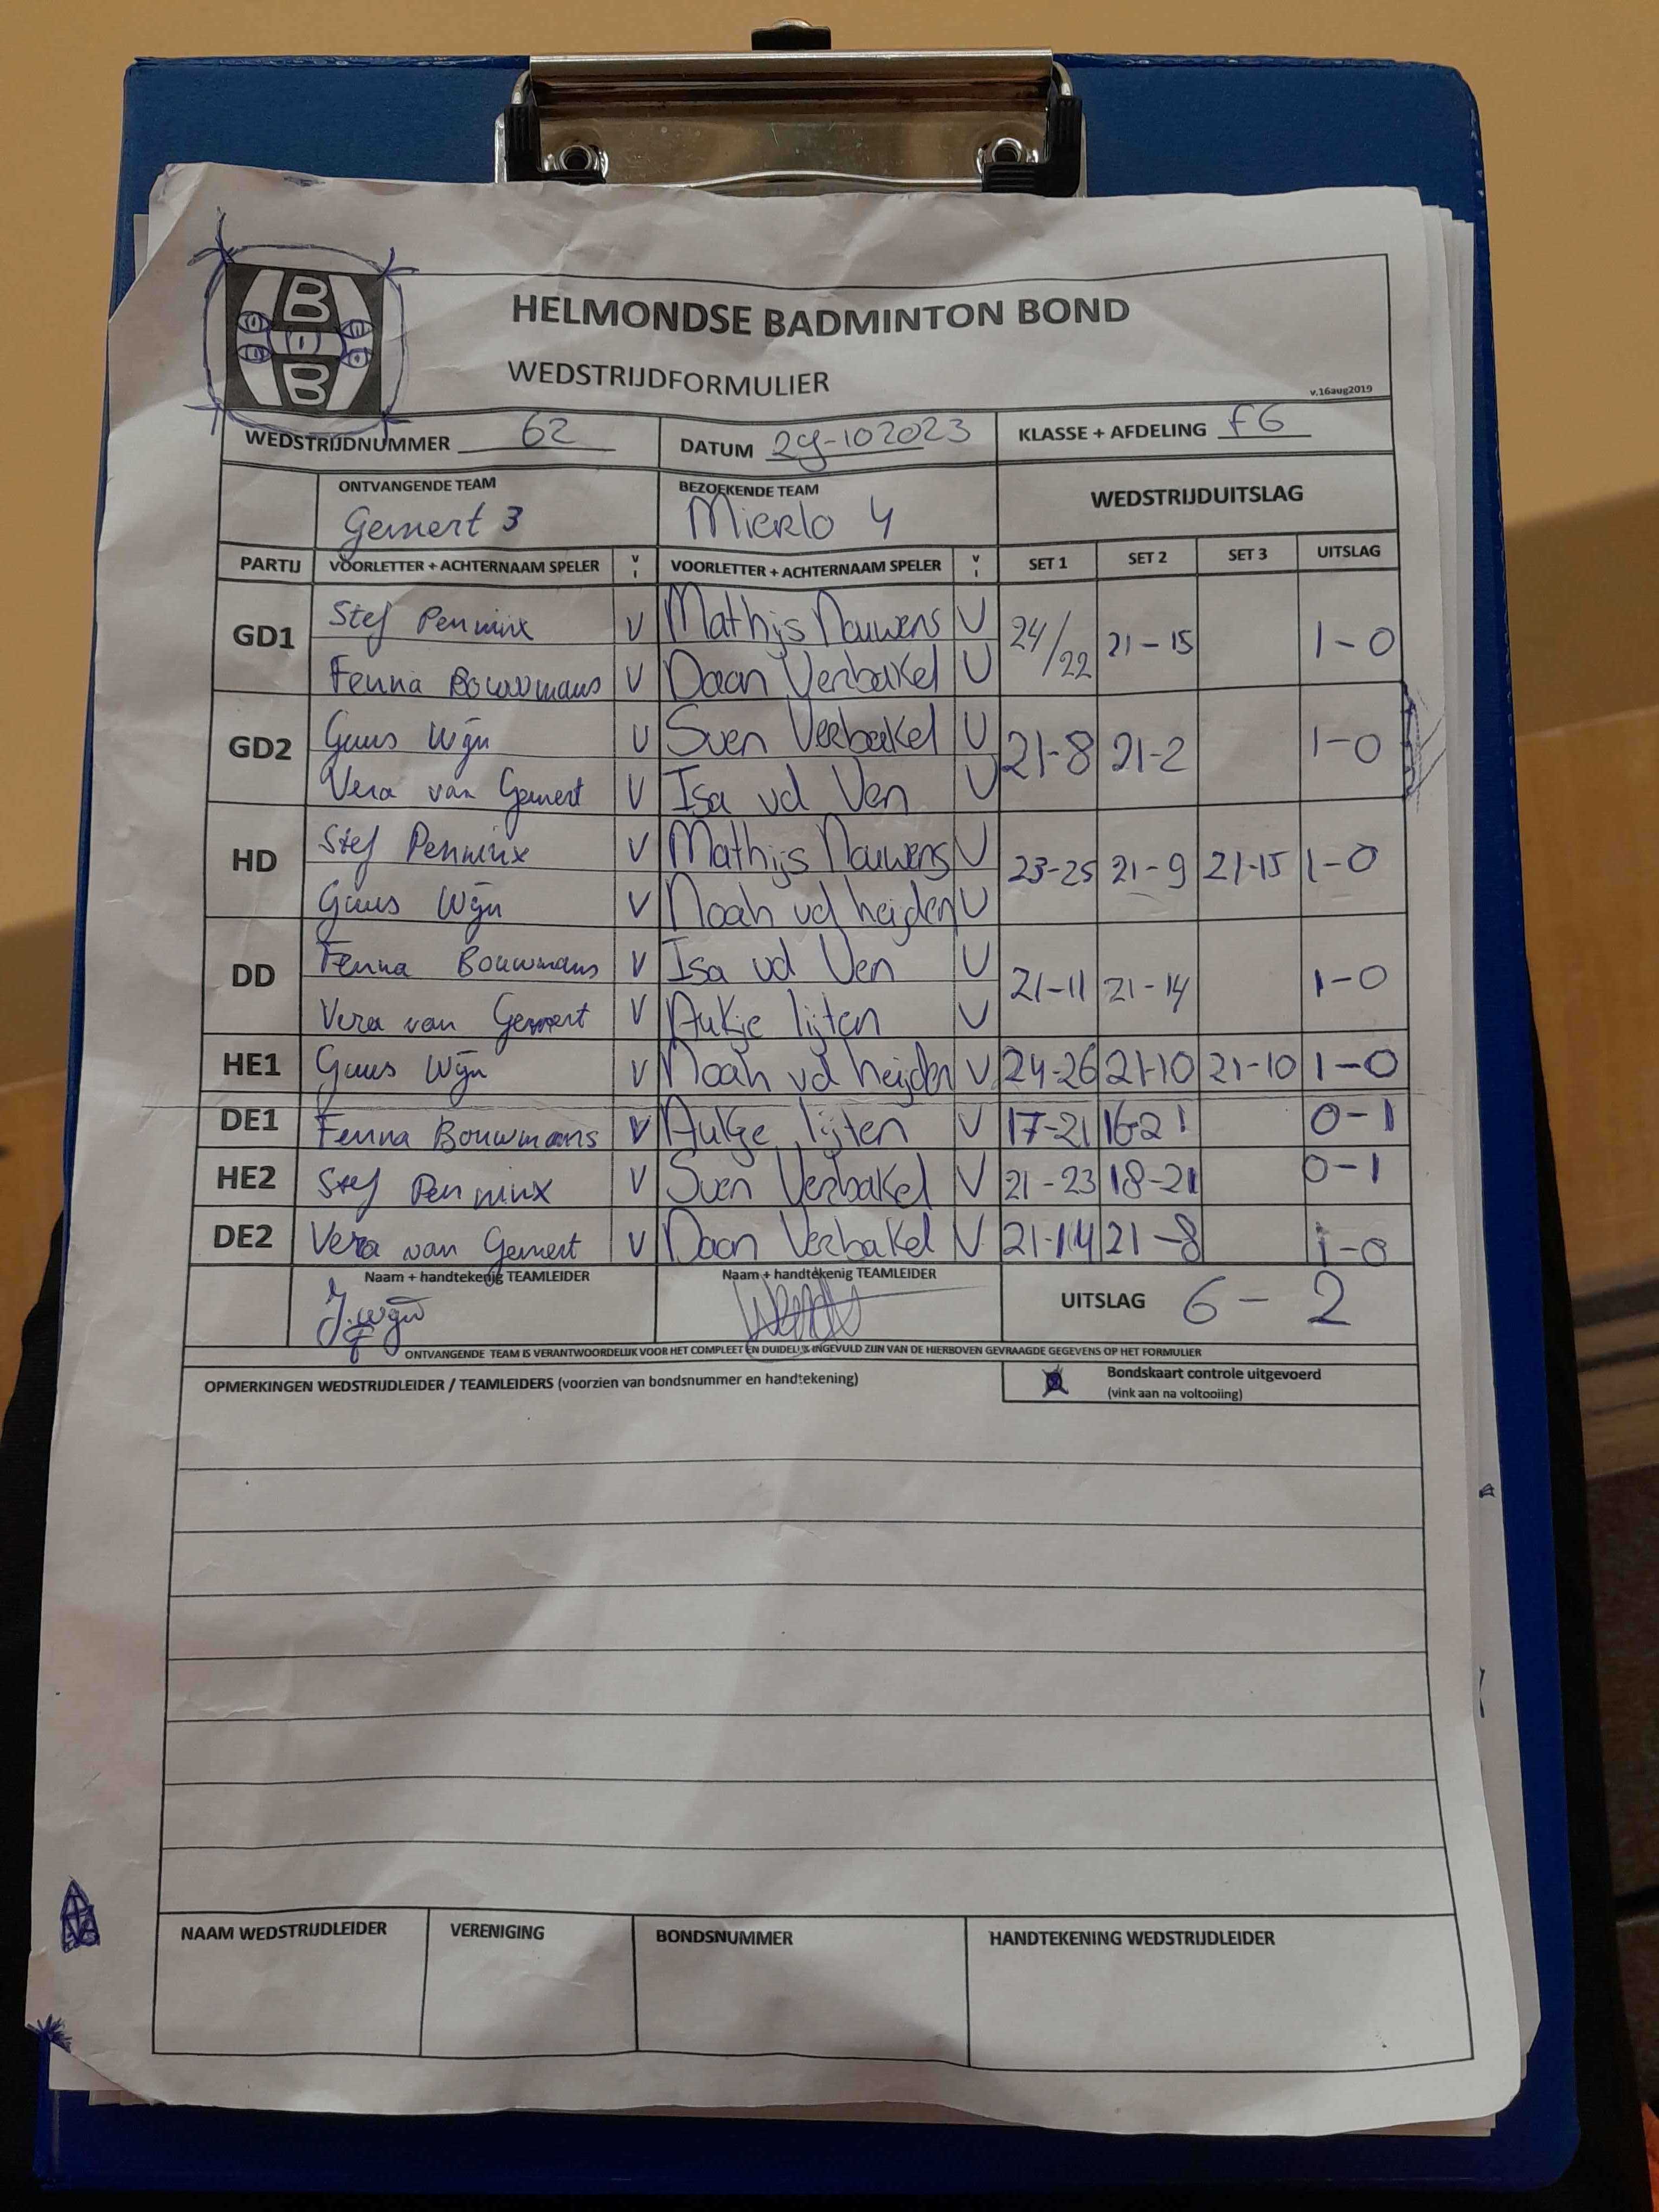 B B B
HELMONDSE BADMINTON BOND
WEDSTRIJDFORMULIER
v.16aug2019
WEDSTRIJDNUMMER 62 DATUM 29-10 2023 KLASSE + AFDELING F6
ONTVANGENDE TEAM BEZOEKENDE TEAM WEDSTRIJDUITSLAG
Gemert 3 Mierlo 4
PARTIJ VOORLETTER + ACHTERNAAM SPELER V I VOORLETTER + ACHTERNAAM SPELER V I SET 1 SET 2 SET 3 UITSLAG
GD1 Stef Penninx V Mathijs Nouwens V 24/22 21-15 1-0
Fenna Bouwmans V Daan Verbakel V
GD2 Guus Wijn V Sven Verbakel V 21-8 21-2 1-0
Vera van Gemert V Isa vd Ven V
HD Stef Penninx V Mathijs Nouwens V 23-25 21-9 21-15 1-0
Guus Wijn V Noah vd heijden V
DD Fenna Bouwmans V Isa vd Ven V 21-11 21-14 1-0
Vera van Gemert V Aukje lijten V
HE1 Guus Wijn V Noah vd heijden V 24-26 21-10 21-10 1-0
DE1 Fenna Bouwmans V Aukje lijten V 17-21 16-21 0-1
HE2 Stef Penninx V Sven Verbakel V 21-23 18-21 0-1
DE2 Vera van Gemert V Daan Verbakel V 21-14 21-8 1-0
Naam + handtekenig TEAMLEIDER Naam + handtekenig TEAMLEIDER UITSLAG 6-2
ONTVANGENDE TEAM IS VERANTWOORDELIJK VOOR HET COMPLEET EN DUIDELIJK INGEVULD ZIJN VAN DE HIERBOVEN GEVRAAGDE GEGEVENS OP HET FORMULIER
OPMERKINGEN WEDSTRIJDLEIDER / TEAMLEIDERS (voorzien van bondsnummer en handtekening) Bondskaart controle uitgevoerd
(vink aan na voltooiing)
NAAM WEDSTRIJDLEIDER VERENIGING BONDSNUMMER HANDTEKENING WEDSTRIJDLEIDER